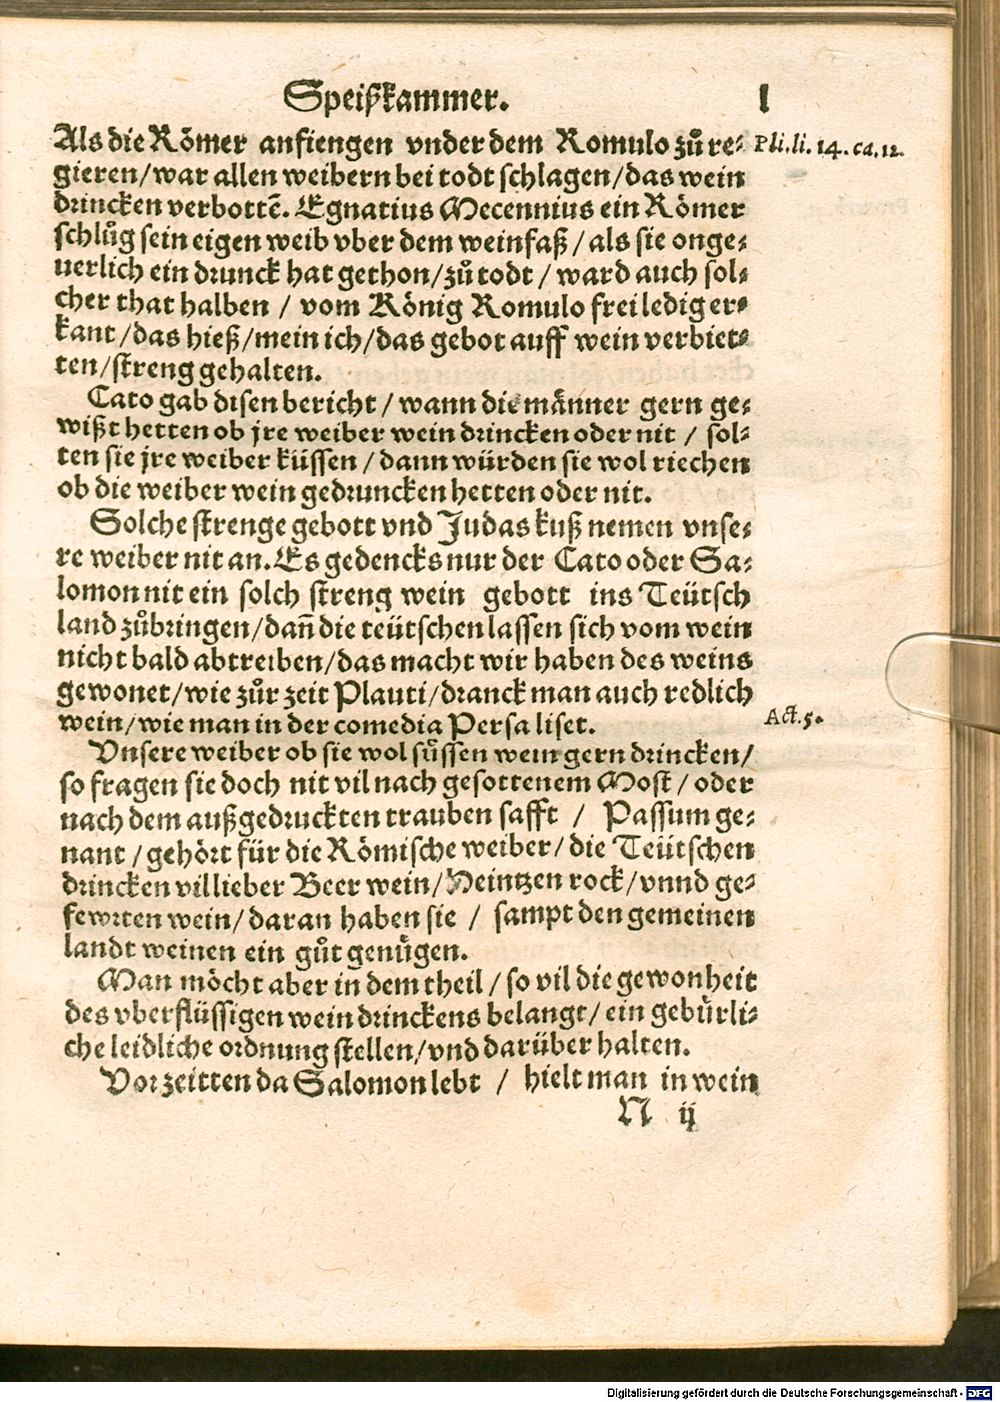 Speißkammer. l
Als die Römer anfiengen vnder dem Romulo zů re- Pli.li. 14. ca.12.
gieren/war allen weibern bei todt schlagen/das wein
drincken verbottē. Egnatius Mecennius ein Römer
schlůg sein eigen weib vber dem weinfaß/als sie onge-
uerlich ein drunck hat gethon/zů todt/ward auch sol-
cher that halben / vom König Romulo frei ledig er-
kant/das hieß/mein ich/das gebot auff wein verbiet-
ten/streng gehalten.
Cato gab disen bericht/wann die männer gern ge-
wißt hetten ob jre weiber wein drincken oder nit / sol-
ten sie jre weiber küssen/dann würden sie wol riechen
ob die weiber wein gedruncken hetten oder nit.
Solche strenge gebott vnd Judas kuß nemen vnse-
re weiber nit an. Es gedencks nur der Cato oder Sa-
lomon nit ein solch streng wein gebott ins Teütsch
land zůbringen/dañ die teütschen lassen sich vom wein
nicht bald abtreiben/das macht wir haben des weins
gewonet/wie zůr zeit Plauti/dranck man auch redlich
wein/wie man in der comedia Persa liset. Act.5.
Vnsere weiber ob sie wol süssen wein gern drincken/
so fragen sie doch nit vil nach gesottenem Most/oder
nach dem außgedruckten trauben safft / Passum ge-
nant/gehört für die Römische weiber/die Teütschen
drincken vil lieber Beer wein/Heintzen rock/vnnd ge-
fewrten wein/daran haben sie / sampt den gemeinen
landt weinen ein gůt genügen.
Man möcht aber in dem theil/so vil die gewonheit
des vberflüssigen wein drinckens belangt/ein gebürli-
che leidliche ordnung stellen/vnd darüber halten.
Vor zeitten da Salomon lebt / hielt man in wein
N ij
Digitalisierung gefördert durch die Deutsche Forschungsgemeinschaft - DFG